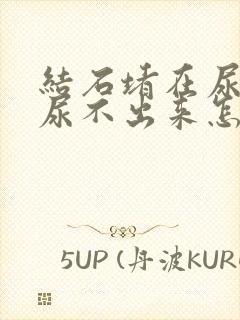 結石堵在尿
尿不出来怎
5UP (丹波KUR